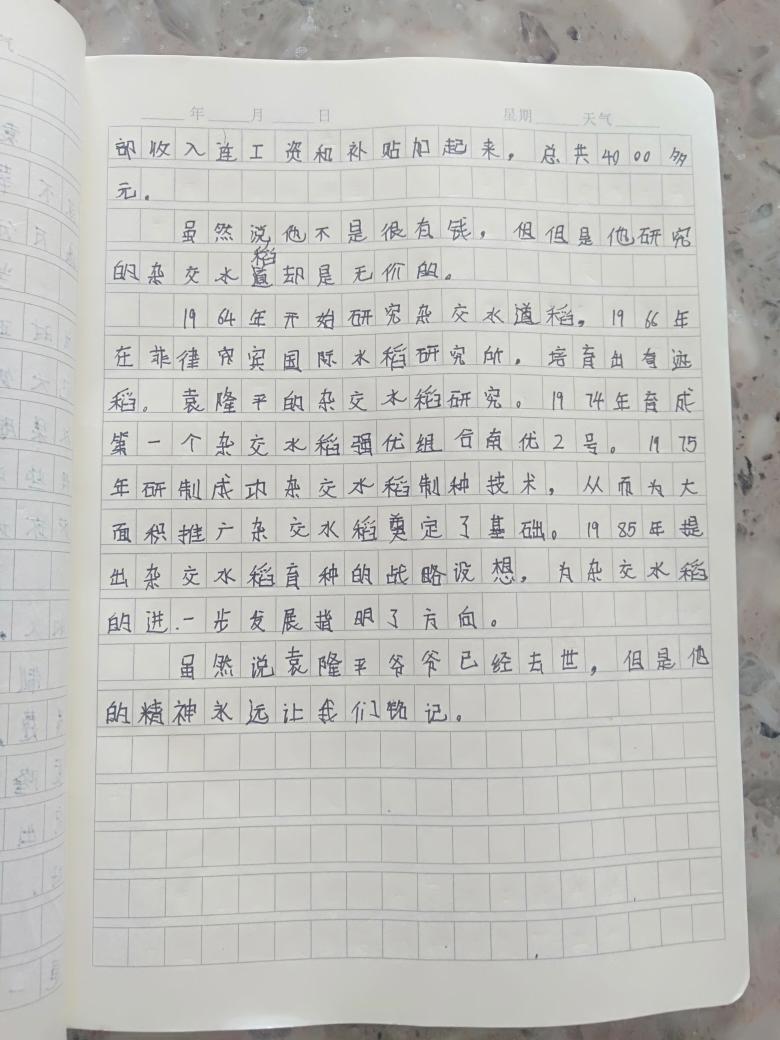 年 月 日 星期 天气
部收入连工资和补贴加起来，总共4000多
元。
虽然说他不是很有钱，但但是他研究
的杂交水稻却是无价的。
1964年开始研究杂交水道稻。1966年
在菲律宾国际水稻研究所，培育出
稻。袁隆平的杂交水稻研究。1974年育成
第一个杂交水稻强优组合南优2号。1975
年研制成功杂交水稻制种技术，从而为大
面积推广杂交水稻奠定了基础。1985年提
出杂交水稻育种的战略设想，为杂交水稻
的进一步发展指明了方向。
虽然说袁隆平爷爷已经去世，但是他
的精神永远让我们铭记。